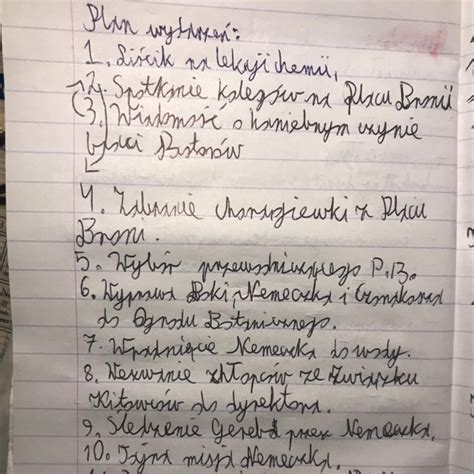 Plan wydarzeń:
1. Liścik na lekcji chemii,
2. Spotkanie kolegów na Placu Broni
(3.) Wiadomość o haniebnym czynie
braci Pastorów
4. Zabranie chorągiewki z Placu
Broni.
5. Wybór przewodniczącego P.B.
6. Wyprawa Boki, Nemeczka i Czonakosza
do Ogrodu Botanicznego.
7. Wpadnięcie Nemeczka do wody.
8. Wezwanie chłopców ze Związku
Kitowców do dyrektora.
9. Śledzenie Gereba przez Nemeczka.
10. Tajna misja Nemeczka.